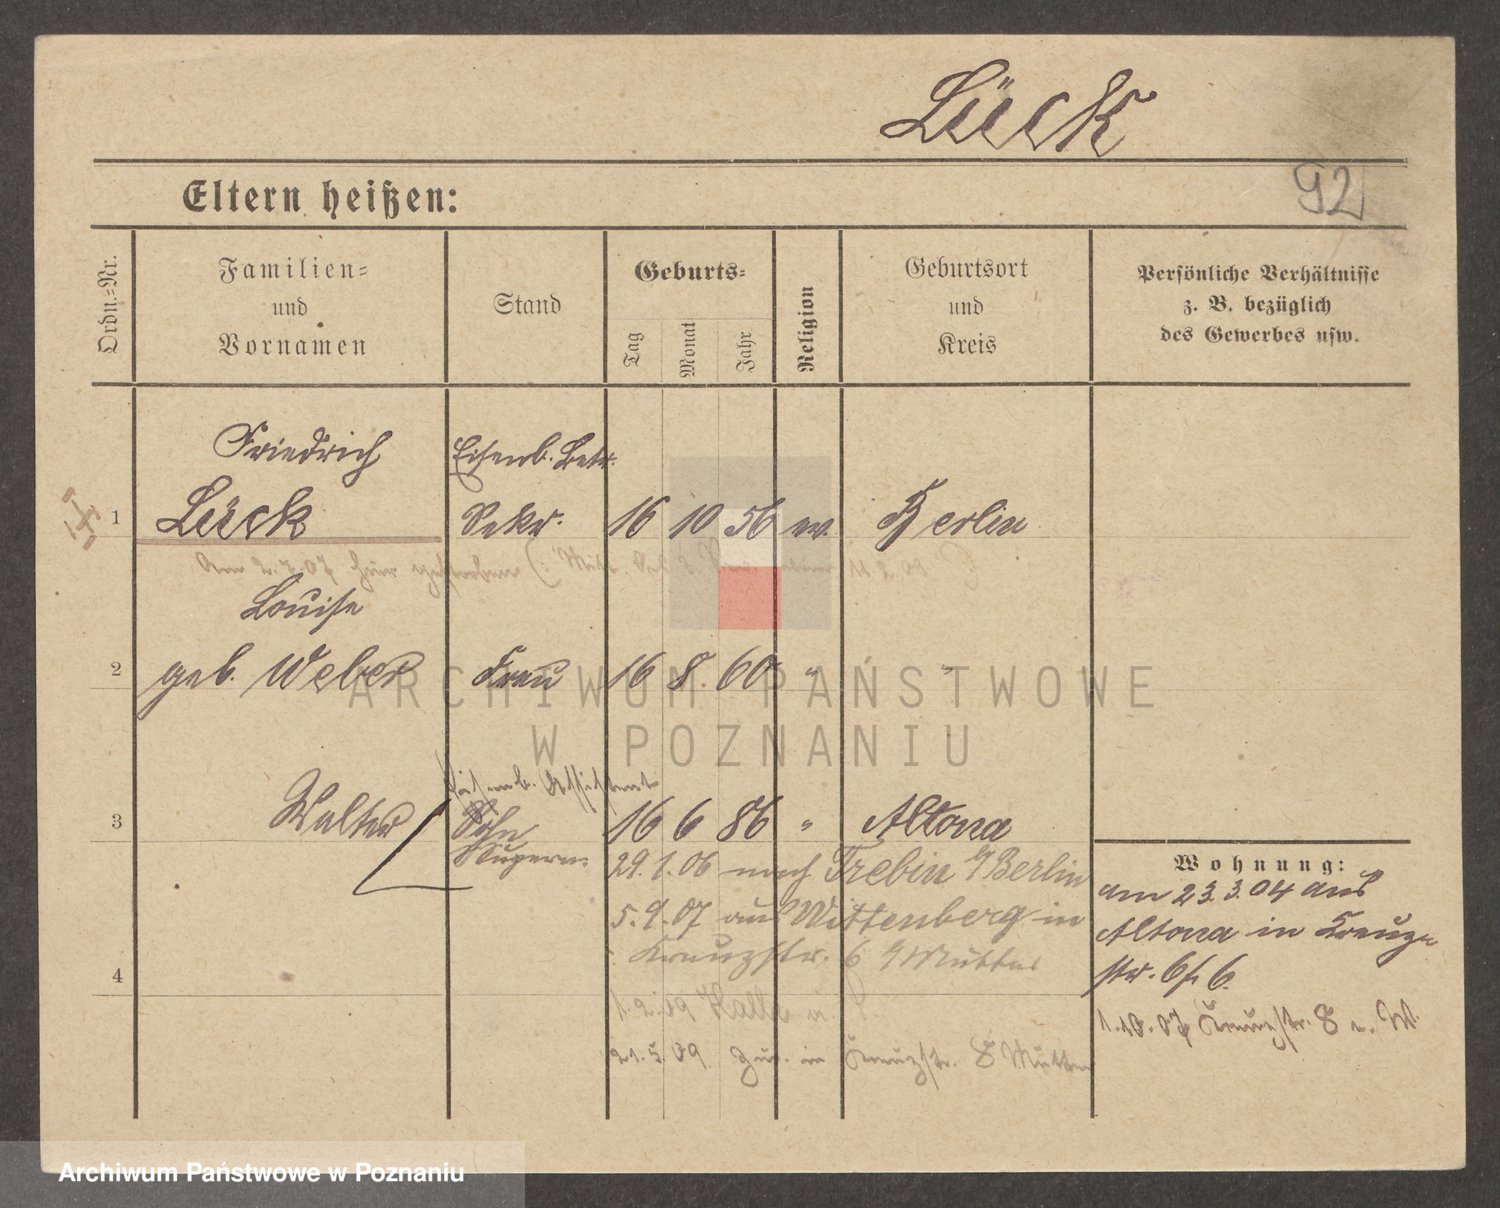 Lück
92
Eltern heißen:
Ordn.=Nr.
Familien=
und
Vornamen
Stand
Geburts=
Tag
Monat
Jahr
Religion
Geburtsort
und
Kreis
Persönliche Verhältnisse
z. B. bezüglich
des Gewerbes usw.
Friedrich Eisenb. Betr.
1 Lück Sekr. 16 10 56 ev. Berlin
Am 2.7.07 hier gestorben
Louise
2 geb. Weber Frau 16 8. 60 " "
Eisenb. Assistent
3 Walter Sohn 16 6 86 " Altona
Supern.
29.1.06 nach Trebin b/Berlin
5.9.07 aus Wittenberg in
Kreuzstr. 6 b/Mutter
4
1.2.09 Halle a. S.
21.5.09 zur. in Kreuzstr. 8 Mutter
Wohnung:
am 23.3.04 aus
Altona in Kreuz-
str. 6 b. 6.
1.10.07 Kreuzstr. 8 n. W.
ARCHIWUM PAŃSTWOWE
W POZNANIU
Archiwum Państwowe w Poznaniu